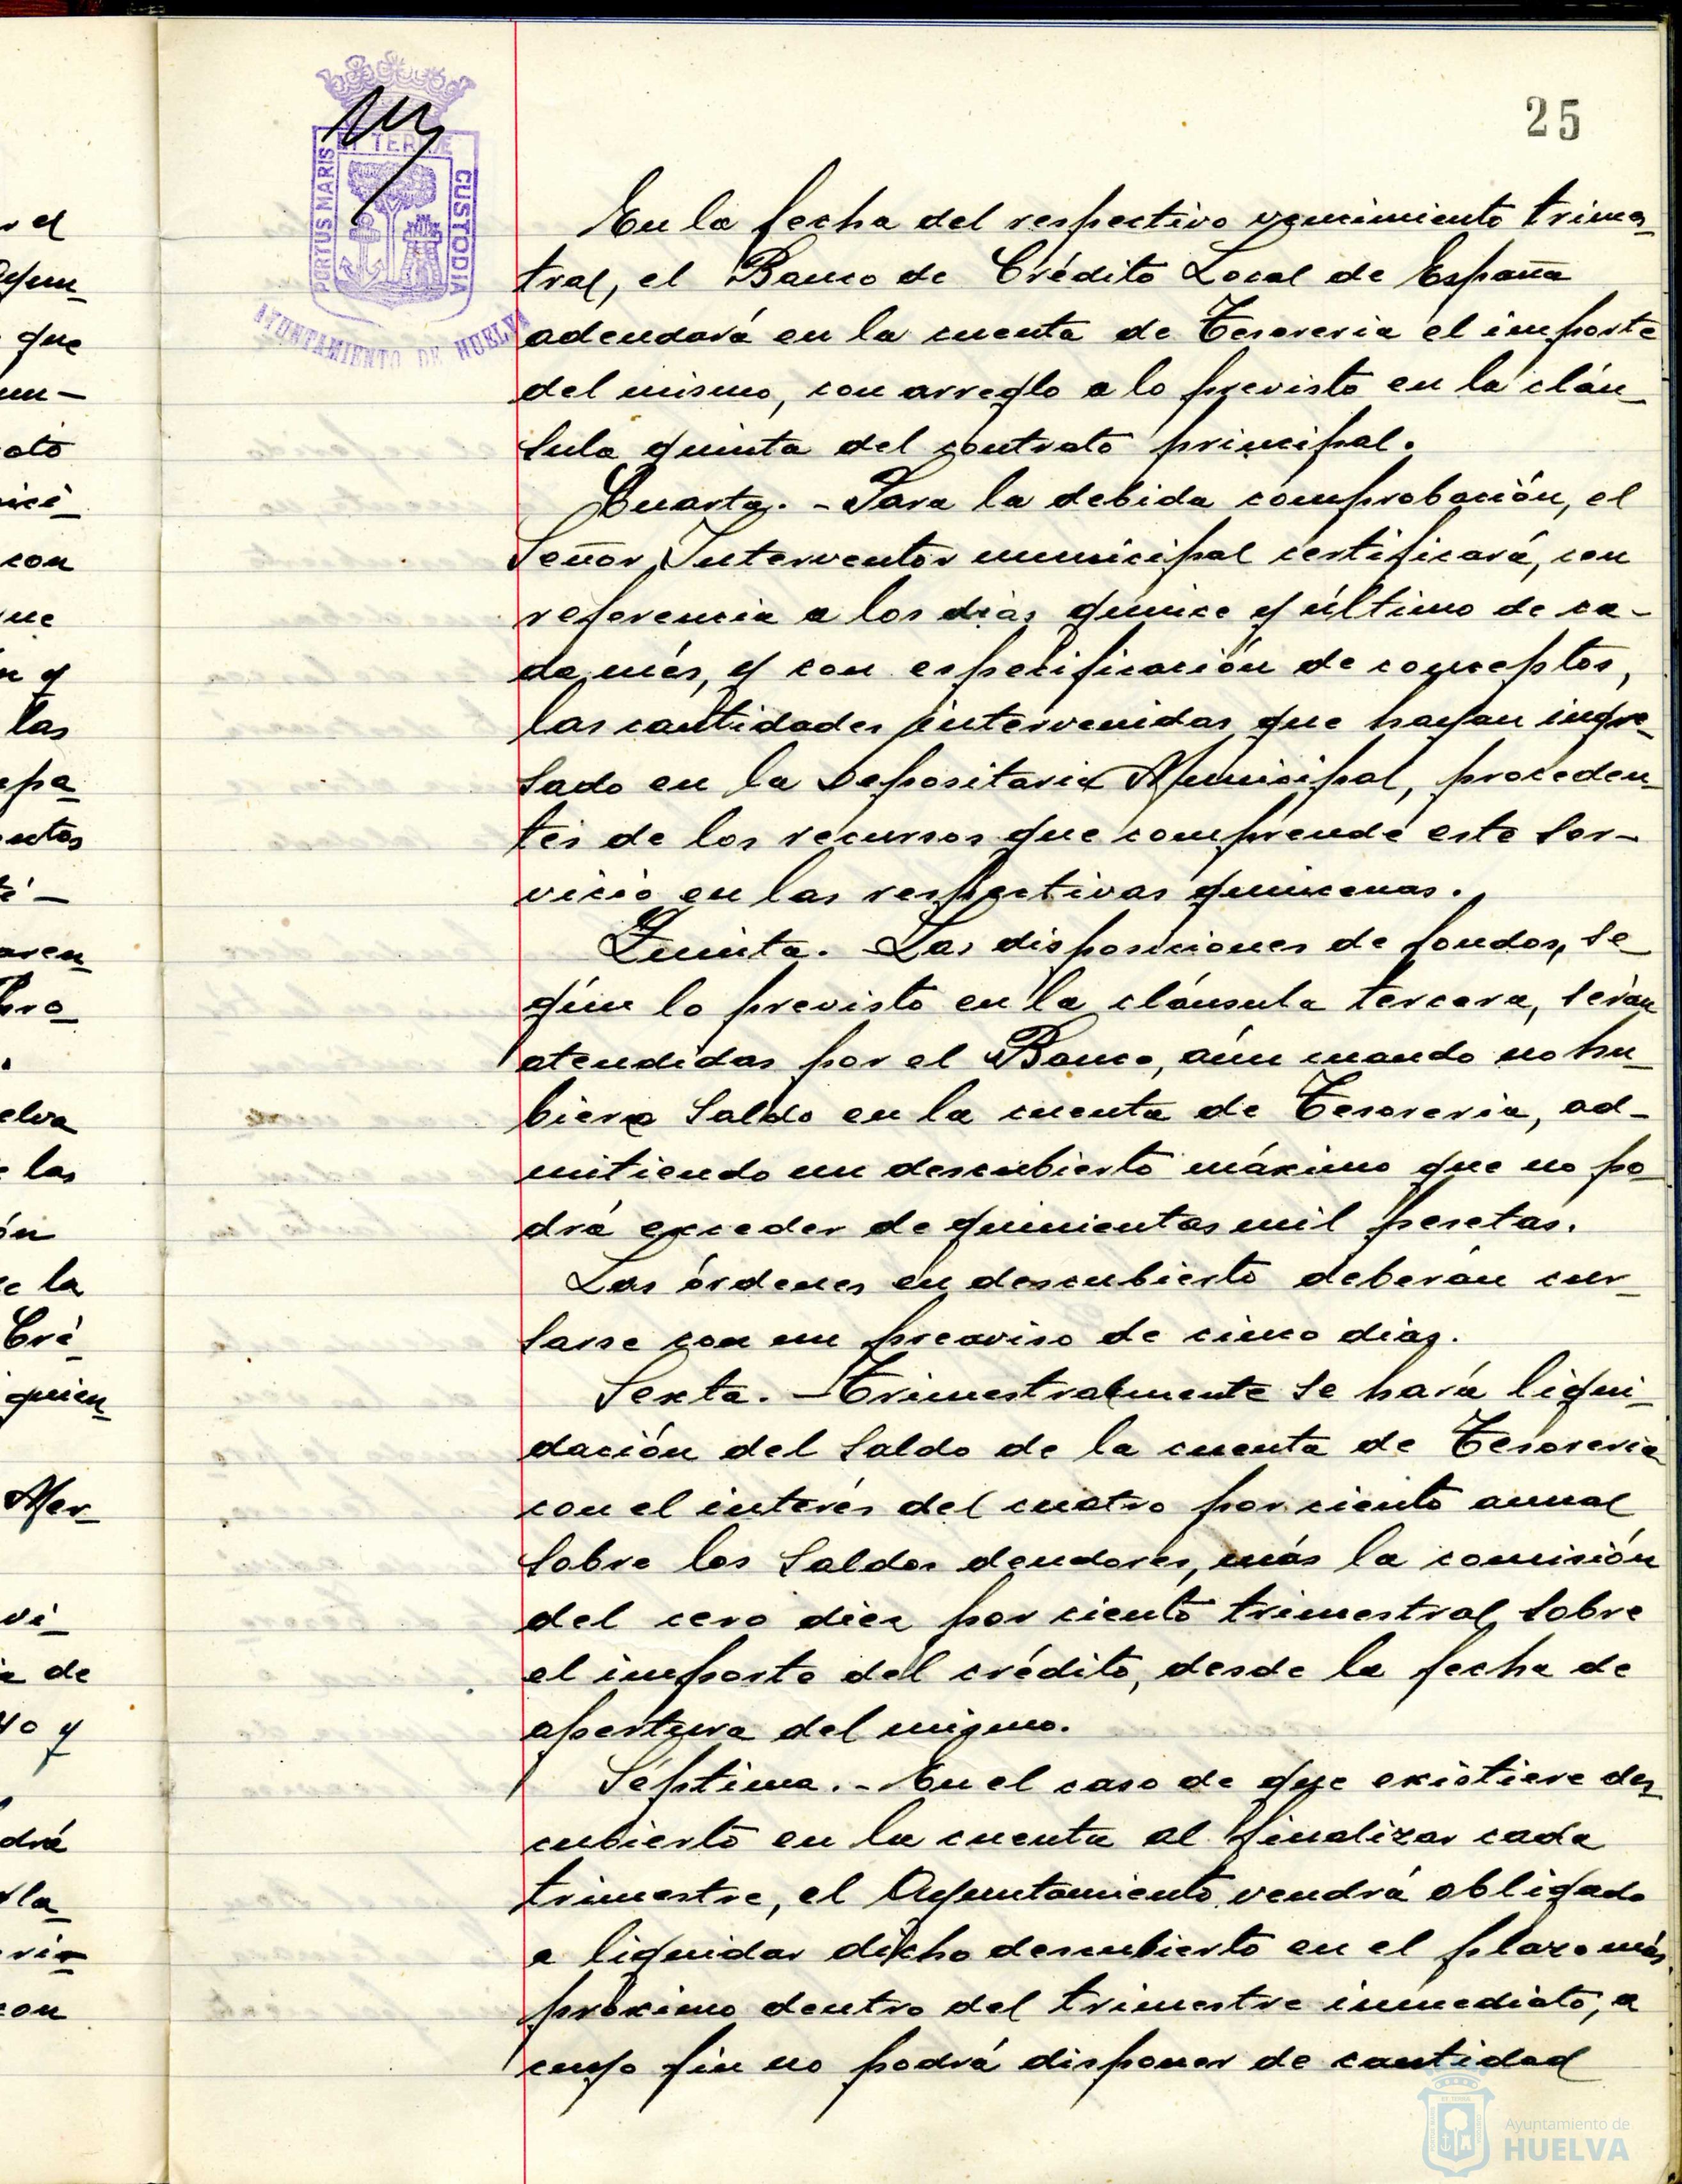 25
PORTUS MARIS
ET TERRÆ
CUSTODIA
AYUNTAMIENTO DE HUELVA
En la fecha del respectivo vencimiento trimes-
tral, el Banco de Crédito Local de España
adeudará en la cuenta de Tesoreria el importe
del mismo, con arreglo a lo previsto en la cláu-
sula quinta del contrato principal.
Cuarta. - Para la debida comprobación, el
Señor Interventor municipal certificará, con
referencia a los dias quince y último de ca-
da més, y con especificación de conceptos,
las cantidades intervenidas que hayan ingre-
sado en la Depositaria Municipal, proceden-
tes de los recursos que comprende este ser-
vicio en las respectivas quincenas.
Quinta. - Las disposiciones de fondos, se-
gún lo previsto en la cláusula tercera, serán
atendidas por el Banco, aún cuando no hu-
biera saldo en la cuenta de Tesoreria, ad-
mitiendo un descubierto máximo que no po-
drá exceder de quinientas mil pesetas.
Las órdenes en descubierto deberán cur-
sarse con un preaviso de cinco dias.
Sexta. - Trimestralmente se hará liqui-
dación del saldo de la cuenta de Tesoreria
con el interés del cuatro por ciento anual
sobre los saldos deudores, más la comisión
del cero diez por ciento trimestral sobre
el importe del crédito, desde la fecha de
apertura del mismo.
Séptima. - En el caso de que existiere des-
cubierto en la cuenta al finalizar cada
trimestre, el Ayuntamiento vendrá obligado
a liquidar dicho descubierto en el plazo más
próximo dentro del trimestre inmediato, a
cuyo fin no podrá disponer de cantidad
Ayuntamiento de
HUELVA